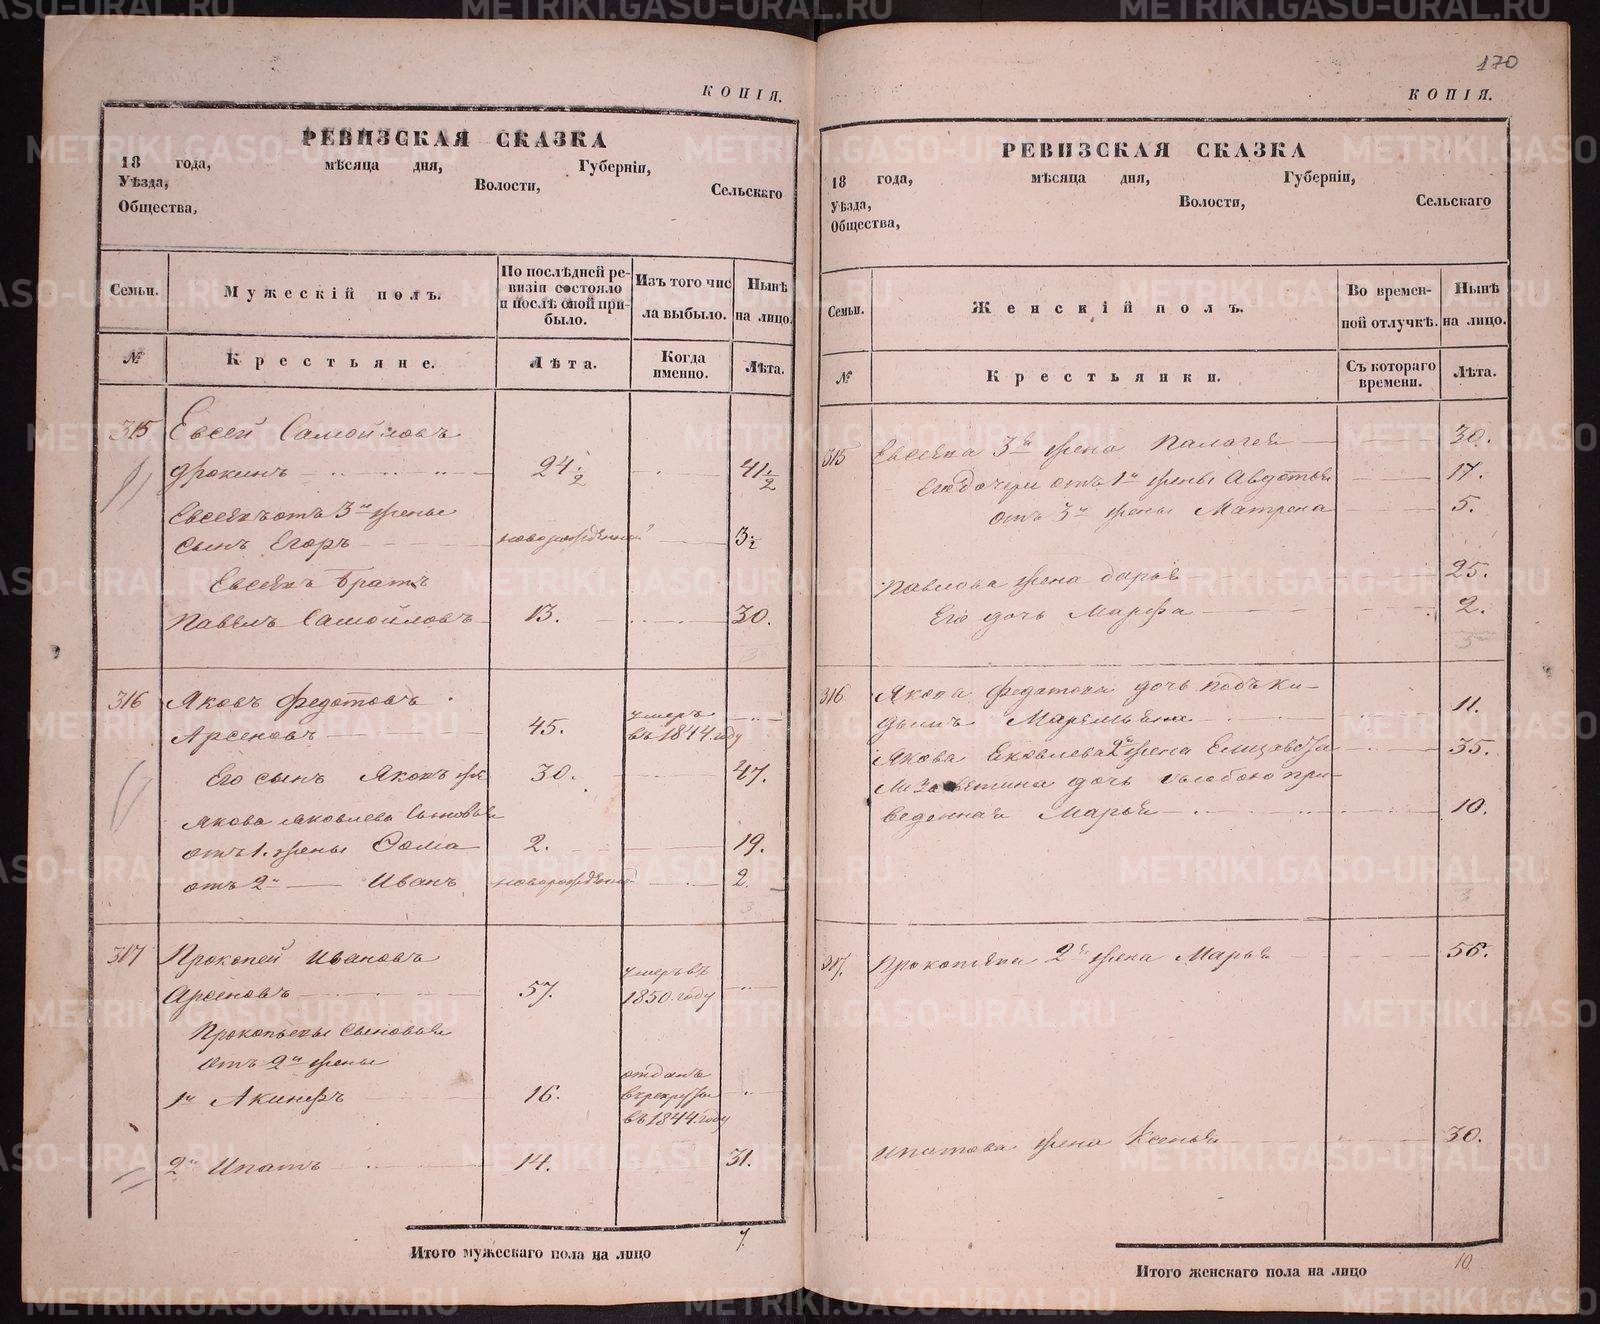 КОПІЯ.
РЕВИЗСКАЯ СКАЗКА
18 года, мѣсяца дня, Губерніи,
Уѣзда, Волости, Сельскаго
Общества,
Семьи.
Мужескій полъ.
По послѣдней ре-
визіи состояло
и послѣ оной при-
было.
Изъ того чис
ла выбыло.
Нынѣ
на лицо.
№
Крестьяне.
Лѣта.
Когда
именно.
Лѣта.
315 Евсей Самойловъ
Фокинъ 24 1/2 41 1/2
Евсеяъ отъ 3й жены
сынъ Егоръ новорожденный 3 1/2
Евсеяъ братъ
Павелъ Самойловъ 13. 30.
3
316 Яковъ Федотовъ
Арсеновъ 45. умеръ
въ 1844 году
Его сынъ Яковъ 30. 47.
Якова Яковлева сыновья
отъ 1. жены Фома 2. 19.
отъ 2й Иванъ новорожденный 2.
3
317 Прокопей Ивановъ
Арсеновъ 57. умеръ въ
1850. году
Прокопьевы сыновья
отъ 2й жены
1й Акинфъ 16. отданъ
въ рекруты
въ 1844. году
2й Ипатъ 14. 31.
Итого мужескаго пола на лицо 7.
170
КОПІЯ.
РЕВИЗСКАЯ СКАЗКА
18 года, мѣсяца дня, Губерніи,
Уѣзда, Волости, Сельскаго
Общества,
Семьи.
Женскій полъ.
Во времен-
ной отлучкѣ.
Нынѣ
на лицо.
№
Крестьянки.
Съ котораго
времени.
Лѣта.
315 Евсеяа 3я жена Палагея 30.
Его дочери отъ 1й жены Авдотья 17.
отъ 3й жены Матрена 5.
Павлова жена Дарья 25.
Его дочь Марфа 2.
5
316 Якова Федотова дочь подъки-
дышъ Маремьяна 11.
Якова Яковлева 2я жена Елизавета 35.
Лизаветина дочь съ собою при-
веденная Марья 10.
3
317. Прокопьева 2я жена Марья 56.
Ипатова жена Ксенья 30.
Итого женскаго пола на лицо 10
METRIKI.GASO-URAL.RU